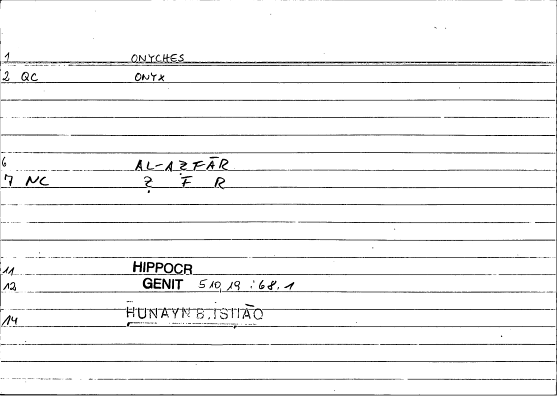 1 ONYCHES
2 QC ONYX
6 AL-AẒFĀR
7 NC Ẓ F R
11 HIPPOCR
12 GENIT 510,19 : 68.1
14 ḤUNAYN B. ISḤĀQ